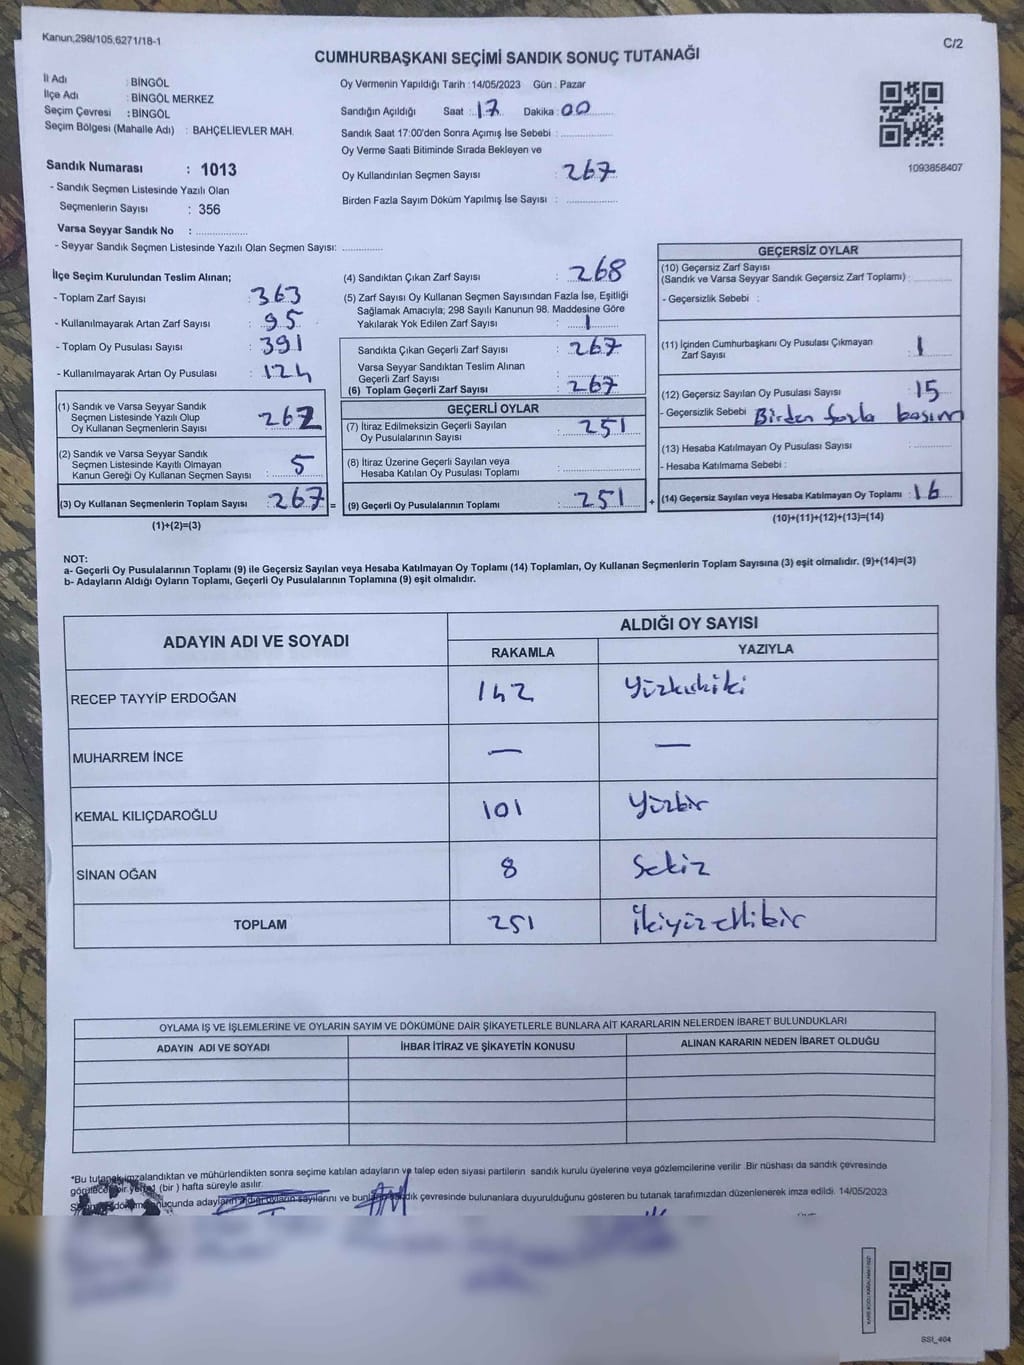 Kanun:298/105,6271/18-1
C/2
CUMHURBAŞKANI SEÇİMİ SANDIK SONUÇ TUTANAĞI
İl Adı : BİNGÖL
İlçe Adı : BİNGÖL MERKEZ
Seçim Çevresi : BİNGÖL
Seçim Bölgesi (Mahalle Adı) : BAHÇELİEVLER MAH.
Sandık Numarası : 1013
- Sandık Seçmen Listesinde Yazılı Olan
Seçmenlerin Sayısı : 356
Varsa Seyyar Sandık No : ..................
- Seyyar Sandık Seçmen Listesinde Yazılı Olan Seçmen Sayısı: ..............
Oy Vermenin Yapıldığı Tarih : 14/05/2023 Gün : Pazar
Sandığın Açıldığı Saat : 17 Dakika : 00
Sandık Saat 17:00'den Sonra Açımış İse Sebebi : ..................
Oy Verme Saati Bitiminde Sırada Bekleyen ve
Oy Kullandırılan Seçmen Sayısı : 267
Birden Fazla Sayım Döküm Yapılmış İse Sayısı : ..................
1093858407
İlçe Seçim Kurulundan Teslim Alınan;
- Toplam Zarf Sayısı : 363
- Kullanılmayarak Artan Zarf Sayısı : 95
- Toplam Oy Pusulası Sayısı : 391
- Kullanılmayarak Artan Oy Pusulası : 124
(1) Sandık ve Varsa Seyyar Sandık
Seçmen Listesinde Yazılı Olup
Oy Kullanan Seçmenlerin Sayısı : 262
(2) Sandık ve Varsa Seyyar Sandık
Seçmen Listesinde Kayıtlı Olmayan
Kanun Gereği Oy Kullanan Seçmen Sayısı : 5
(3) Oy Kullanan Seçmenlerin Toplam Sayısı : 267 =
(1)+(2)=(3)
(4) Sandıktan Çıkan Zarf Sayısı : 268
(5) Zarf Sayısı Oy Kullanan Seçmen Sayısından Fazla İse, Eşitliği
Sağlamak Amacıyla; 298 Sayılı Kanunun 98. Maddesine Göre
Yakılarak Yok Edilen Zarf Sayısı : 1
Sandıkta Çıkan Geçerli Zarf Sayısı : 267
Varsa Seyyar Sandıktan Teslim Alınan
Geçerli Zarf Sayısı :
(6) Toplam Geçerli Zarf Sayısı : 267
GEÇERLİ OYLAR
(7) İtiraz Edilmeksizin Geçerli Sayılan
Oy Pusulalarının Sayısı : 251
(8) İtiraz Üzerine Geçerli Sayılan veya
Hesaba Katılan Oy Pusulası Toplamı : ..................
(9) Geçerli Oy Pusulalarının Toplamı : 251 +
GEÇERSİZ OYLAR
(10) Geçersiz Zarf Sayısı
(Sandık ve Varsa Seyyar Sandık Geçersiz Zarf Toplamı) : ............
- Geçersizlik Sebebi :
(11) İçinden Cumhurbaşkanı Oy Pusulası Çıkmayan
Zarf Sayısı : 1
(12) Geçersiz Sayılan Oy Pusulası Sayısı : 15
- Geçersizlik Sebebi Birden fazla basım
(13) Hesaba Katılmayan Oy Pusulası Sayısı : ............
- Hesaba Katılmama Sebebi :
(14) Geçersiz Sayılan veya Hesaba Katılmayan Oy Toplamı : 16
(10)+(11)+(12)+(13)=(14)
NOT:
a- Geçerli Oy Pusulalarının Toplamı (9) ile Geçersiz Sayılan veya Hesaba Katılmayan Oy Toplamı (14) Toplamları, Oy Kullanan Seçmenlerin Toplam Sayısına (3) eşit olmalıdır. (9)+(14)=(3)
b- Adayların Aldığı Oyların Toplamı, Geçerli Oy Pusulalarının Toplamına (9) eşit olmalıdır.
ADAYIN ADI VE SOYADI
ALDIĞI OY SAYISI
RAKAMLA YAZIYLA
RECEP TAYYİP ERDOĞAN 142 Yüzkırkiki
MUHARREM İNCE — —
KEMAL KILIÇDAROĞLU 101 Yüzbir
SİNAN OĞAN 8 Sekiz
TOPLAM 251 İkiyüzellibir
OYLAMA İŞ VE İŞLEMLERİNE VE OYLARIN SAYIM VE DÖKÜMÜNE DAİR ŞİKAYETLERLE BUNLARA AİT KARARLARIN NELERDEN İBARET BULUNDUKLARI
ADAYIN ADI VE SOYADI İHBAR İTİRAZ VE ŞİKAYETİN KONUSU ALINAN KARARIN NEDEN İBARET OLDUĞU
*Bu tutanak imzalandıktan ve mühürlendikten sonra seçime katılan adayların ve talep eden siyasi partilerin sandık kurulu üyelerine veya gözlemcilerine verilir. Bir nüshası da sandık çevresinde
görülecek bir yere 1 (bir) hafta süreyle asılır.
adayların sayılarını ve çevresinde bulunanlara duyurulduğunu gösteren bu tutanak tarafımızdan düzenlenerek imza edildi. 14/05/2023
SSI_404